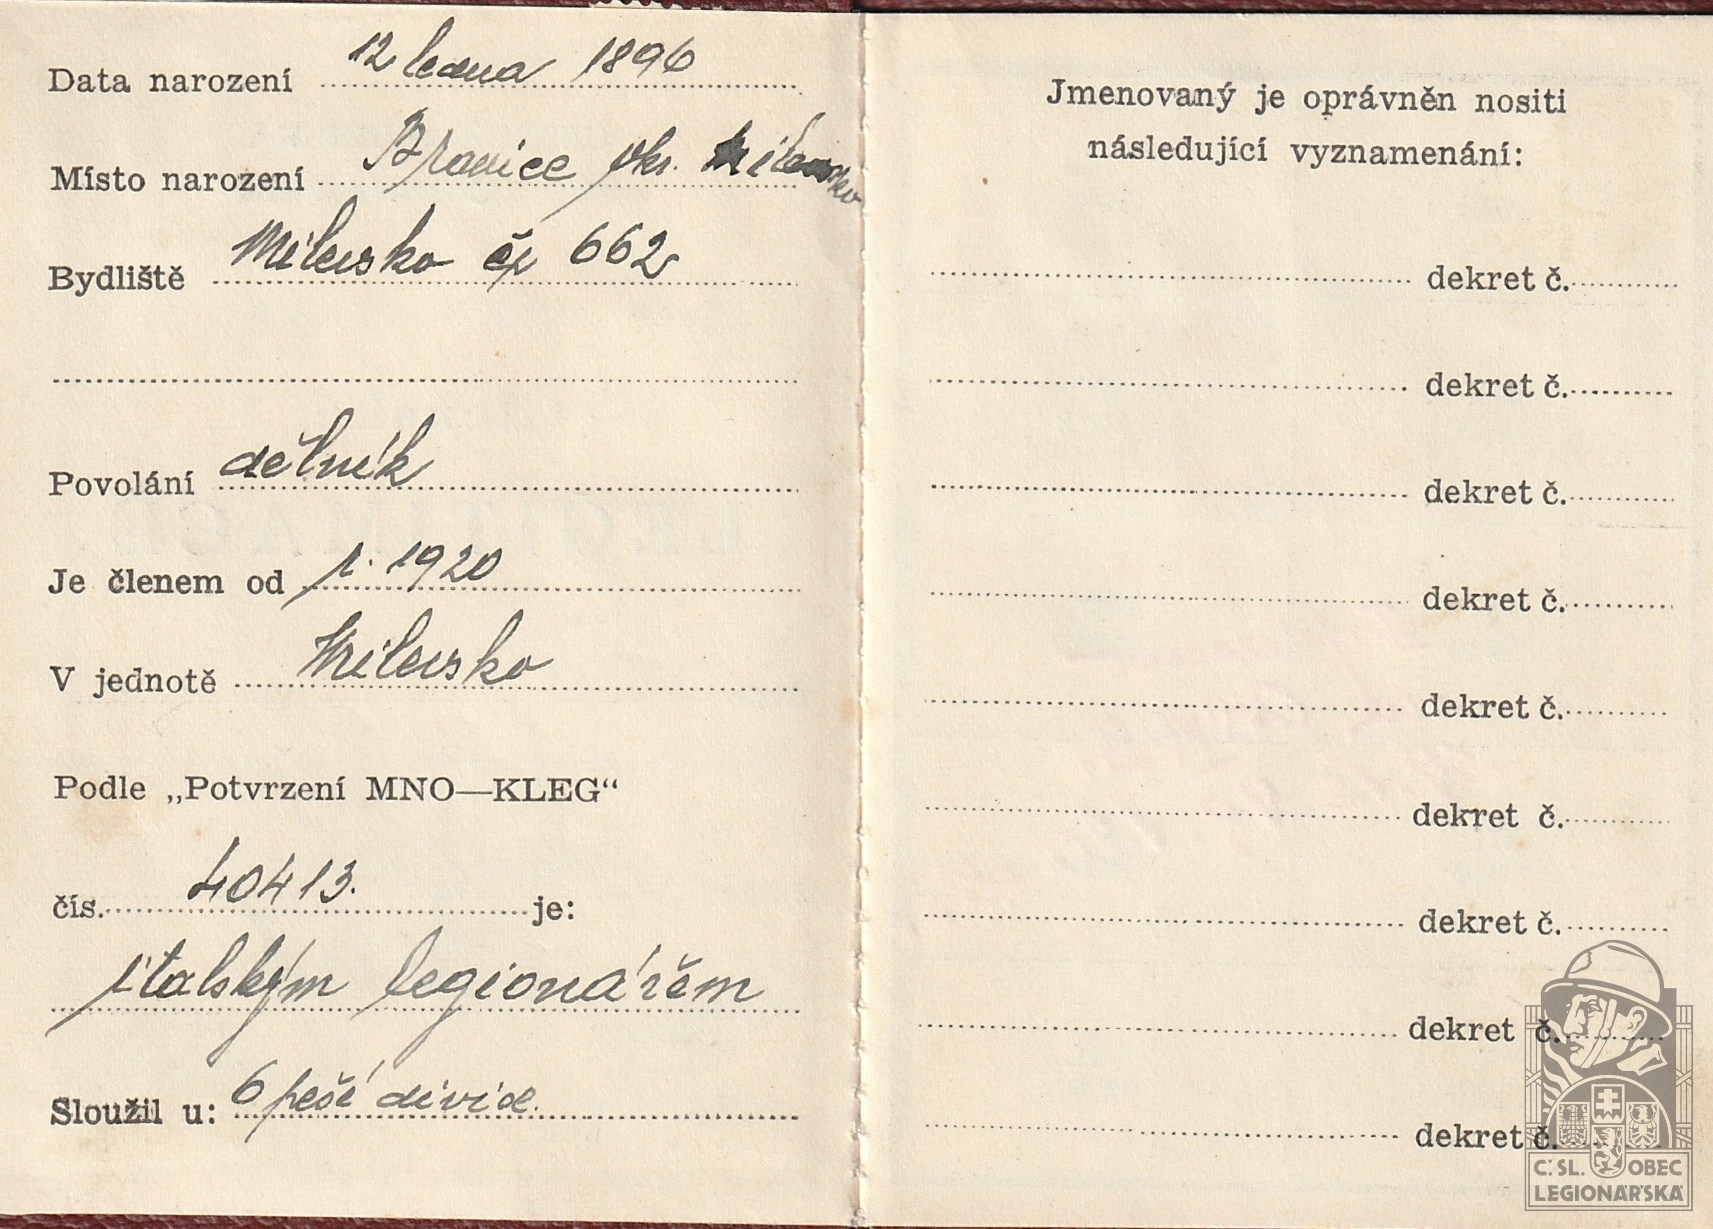 Data narození 12 ledna 1896
Místo narození Branice okr. Milevsko
Bydliště Milevsko čp 662
Povolání dělník
Je členem od r. 1920
V jednotě Milevsko
Podle „Potvrzení MNO—KLEG“
čís. 40413. je:
italským legionářem
Sloužil u: 6 pěší divise.
Jmenovaný je oprávněn nositi
následující vyznamenání:
dekret č.
dekret č.
dekret č.
dekret č.
dekret č.
dekret č.
dekret č.
dekret č.
dekret č.
Č. SL. OBEC
LEGIONÁŘSKÁ